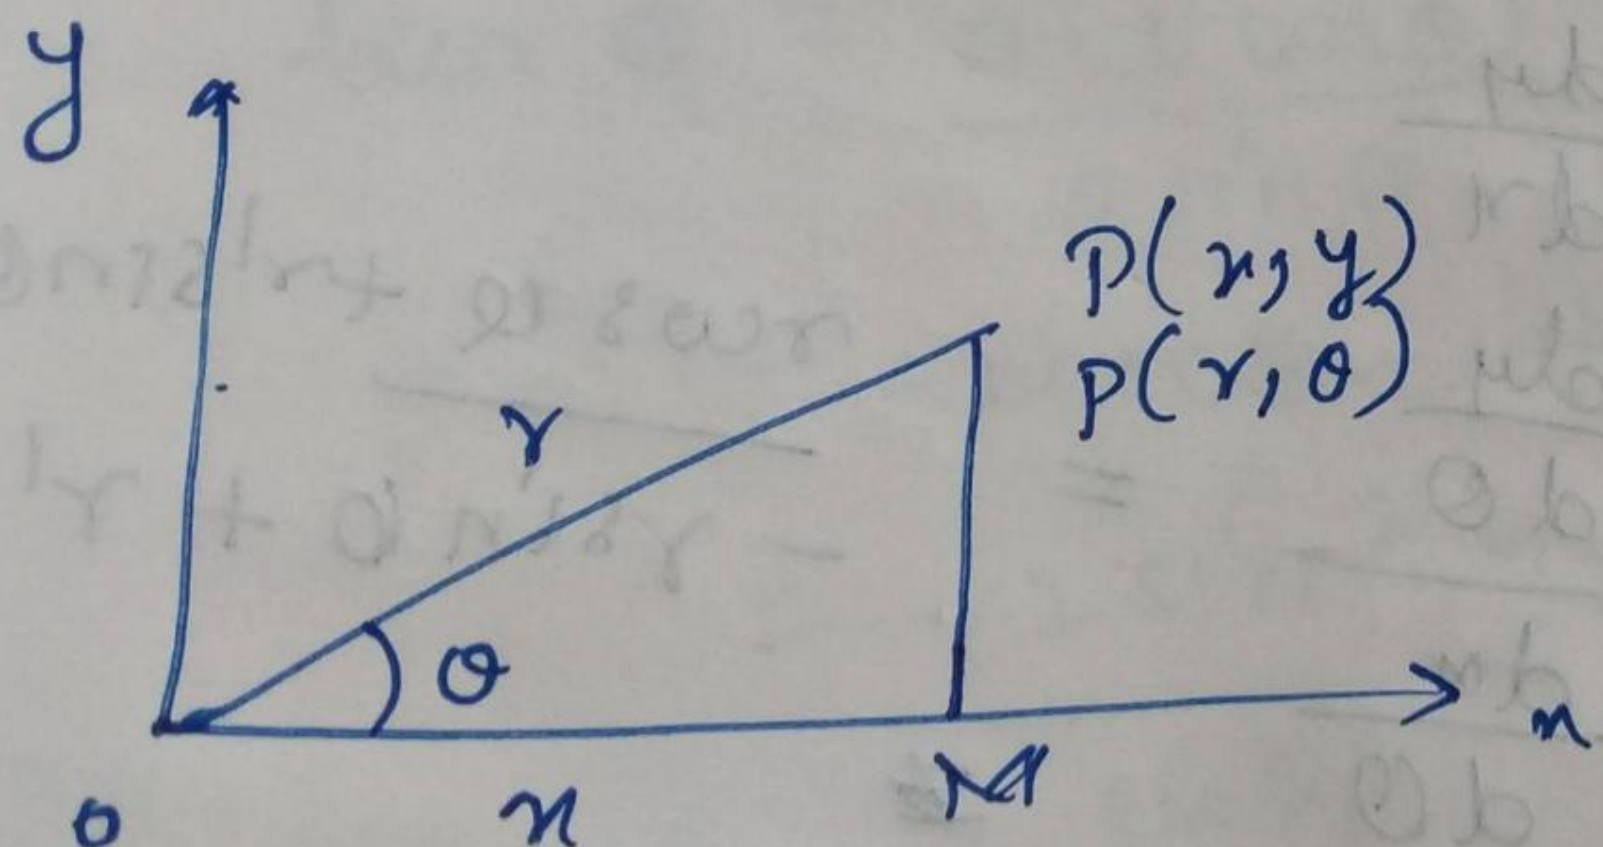 y
P(x, y)
P(r, θ)
r
θ
x
M
x
o